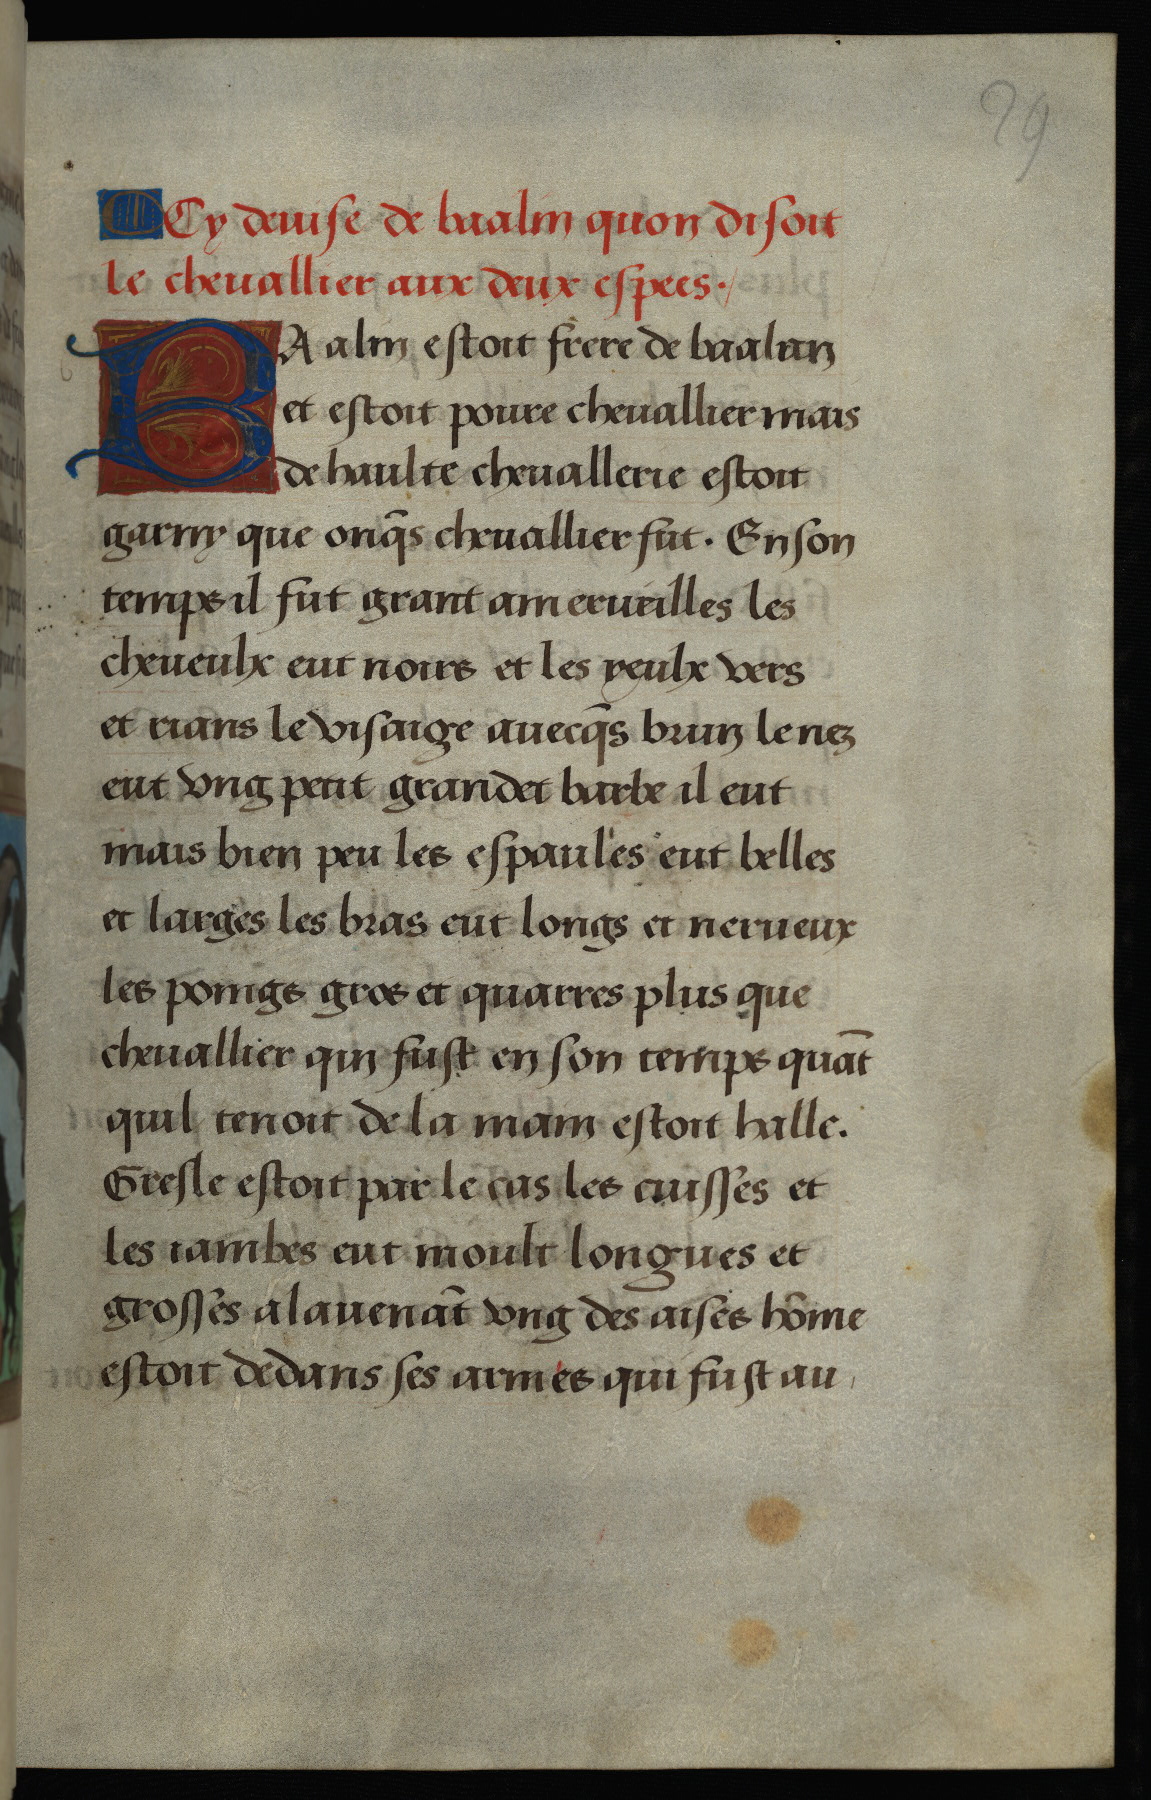 29
Cy deuise de baalin quon disoit
le cheuallier aux deux espees./
BAalin estoit frere de baalan
et estoit poure cheuallier mais
de haulte cheuallerie estoit
garny que onq̄s cheuallier fut. En son
temps il fut grant amerueilles les
cheueulx eut noirs et les yeulx vers
et rians le visaige auecq̄s brun le nez
eut vng petit grandet barbe il eut
mais bien peu les espaules eut belles
et larges les bras eut longs et nerueux
les poings gros et quarres plus que
cheuallier qui fust en son temps quāt
quil tenoit de la main estoit balle.
Gresle estoit par le cas les cuisses et
les iambes eut moult longues et
grosses alauenāt vng des aises hōme
estoit dedans ses armes qui fust au